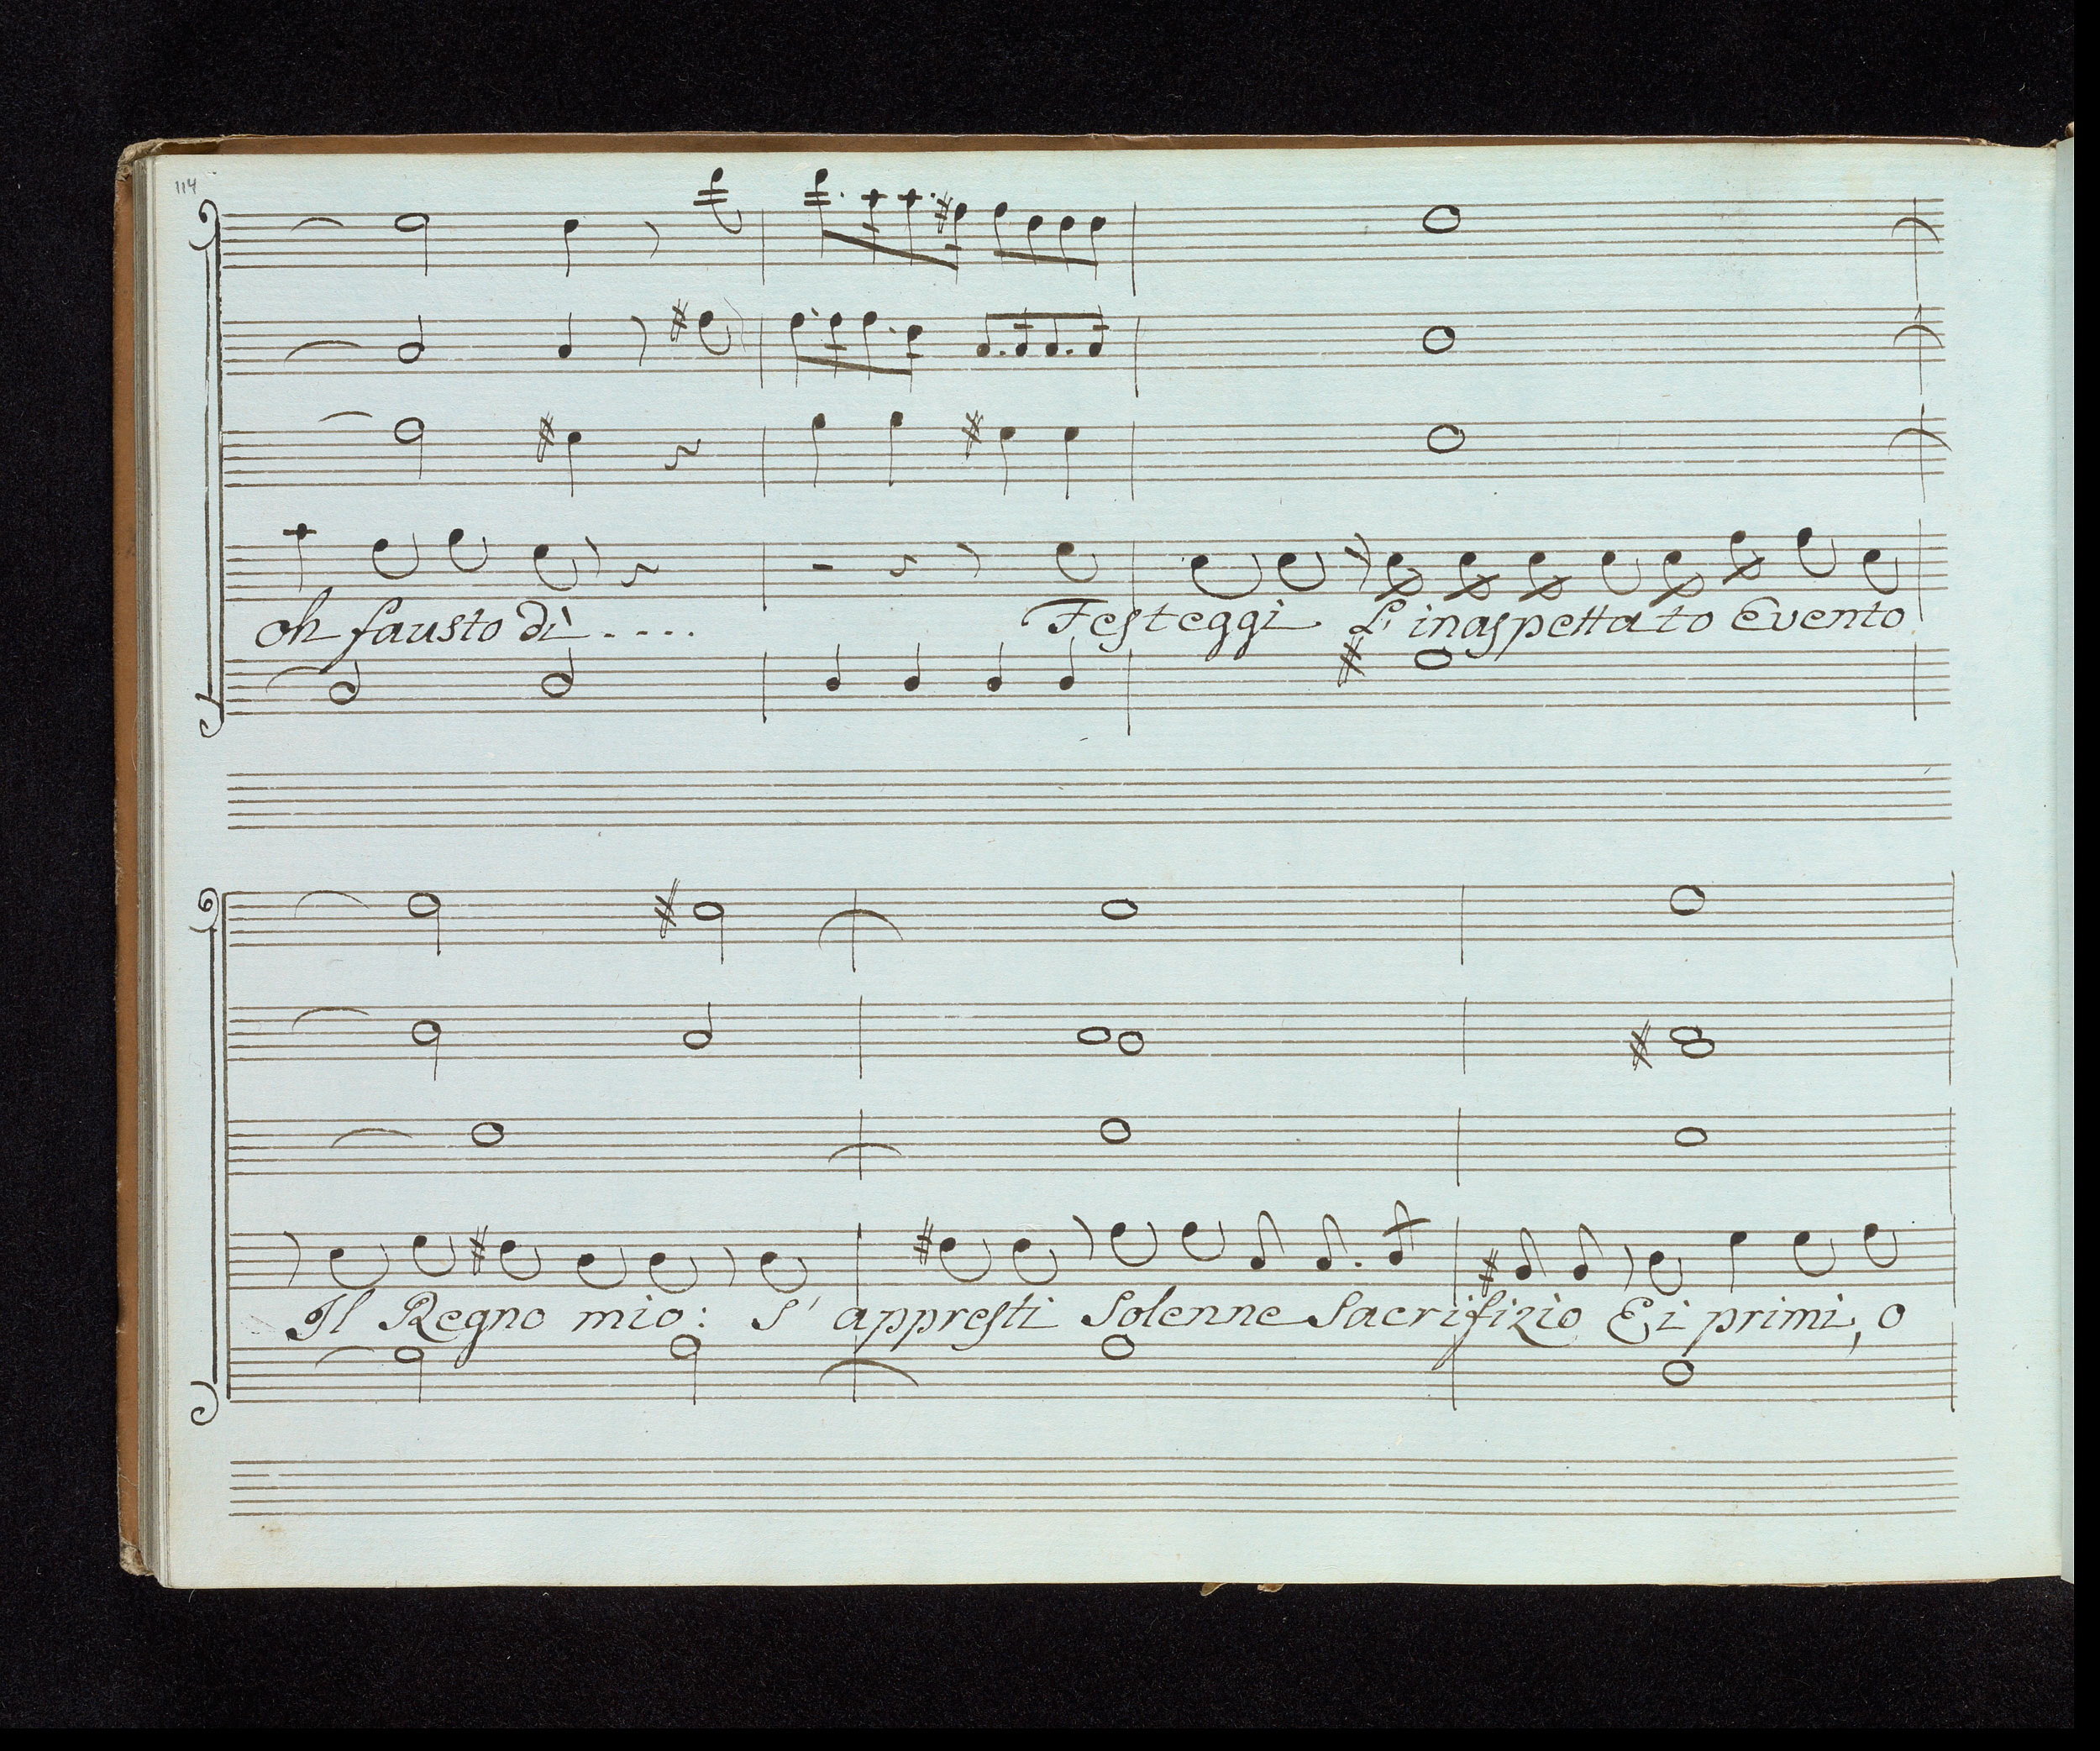 114
oh fausto dì . . . . Festeggi L'inaspettato Evento
Il Regno mio: S'appresti Solenne Sacrifizio Ei primi, o